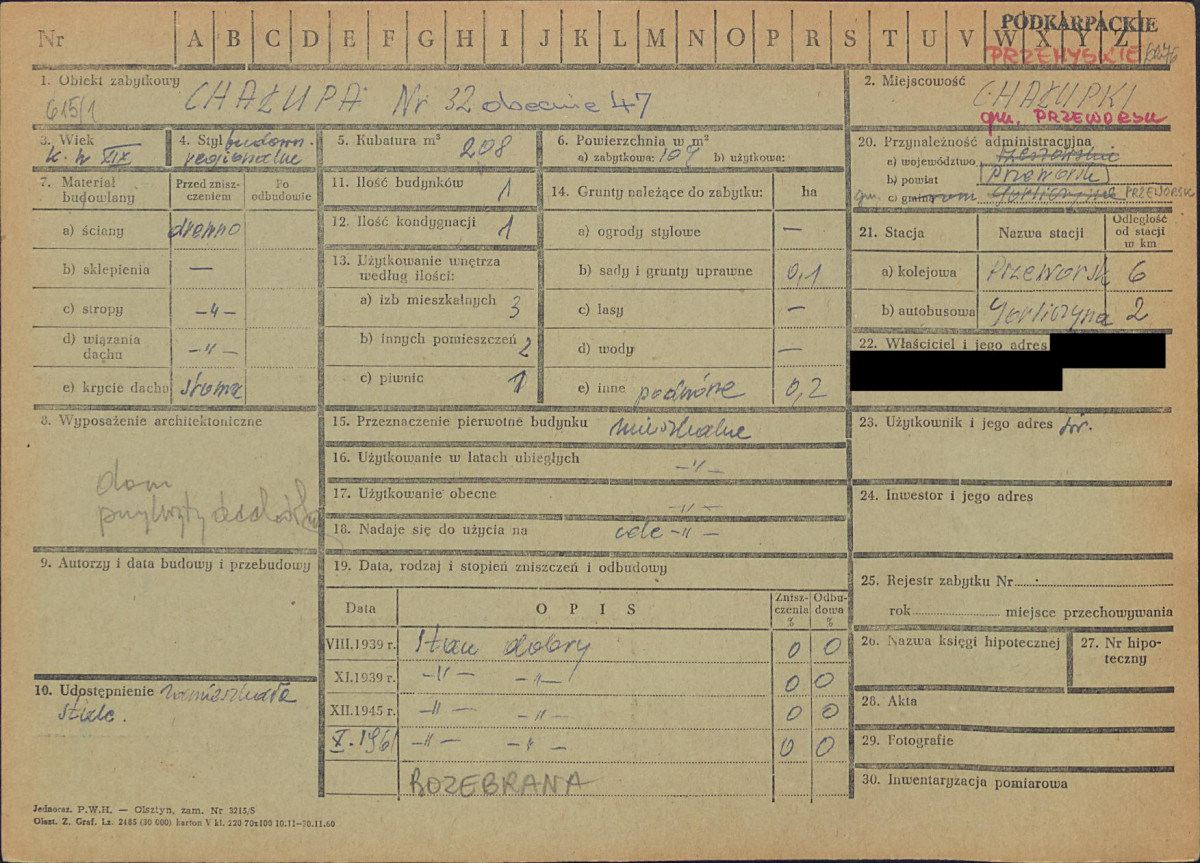 Nr A B C D E F G H I J K L M N O P R S T U V W X Y Z
PODKARPACKIE
PRZEMYSKIE
1. Obiekt zabytkowy
615/1 CHAŁUPA Nr 32 obecnie 47
2. Miejscowość
CHAŁUPKI
gm. PRZEWORSK
3. Wiek
k. w XIX
4. Styl budown.
regionalne
5. Kubatura m³ 208
6. Powierzchnia w m²
a) zabytkowa: 104 b) użytkowa:
20. Przynależność administracyjna
a) województwo rzeszowskie
b) powiat Przeworsk
gm. c) gmina Gorliczyna PRZEWORSK
7. Materiał budowlany
Przed zniszczeniem
Po odbudowie
a) ściany drewno
b) sklepienia —
c) stropy —„—
d) wiązania dachu —„—
e) krycie dachu słoma
11. Ilość budynków 1
12. Ilość kondygnacji 1
13. Użytkowanie wnętrza
według ilości:
a) izb mieszkalnych 3
b) innych pomieszczeń 2
c) piwnic 1
14. Grunty należące do zabytku: ha
a) ogrody stylowe —
b) sady i grunty uprawne 0,1
c) lasy —
d) wody —
e) inne podwórze 0,2
21. Stacja Nazwa stacji Odległość od stacji w km
a) kolejowa Przeworsk 6
b) autobusowa Gorliczyna 2
22. Właściciel i jego adres
8. Wyposażenie architektoniczne
dom
15. Przeznaczenie pierwotne budynku mieszkalne
16. Użytkowanie w latach ubiegłych —„—
17. Użytkowanie obecne —„—
18. Nadaje się do użycia na cele —„—
23. Użytkownik i jego adres j.w.
24. Inwestor i jego adres
9. Autorzy i data budowy i przebudowy
19. Data, rodzaj i stopień zniszczeń i odbudowy
Data OPIS Zniszczenia % Odbudowa %
VIII.1939 r. Stan dobry 0 0
XI.1939 r. —„— —„— 0 0
XII.1945 r. —„— —„— 0 0
X.1961 —„— —„— 0 0
ROZEBRANA
25. Rejestr zabytku Nr
rok miejsce przechowywania
26. Nazwa księgi hipotecznej
27. Nr hipoteczny
10. Udostępnienie zamieszkała
stale.
28. Akta
29. Fotografie
30. Inwentaryzacja pomiarowa
Jednoraz. P.W.H. — Olsztyn, zam. Nr 3215/S
Olszt. Z. Graf. Lz. 2485 (30 000) karton V kl. 220 70x100 10.11—30.11.60